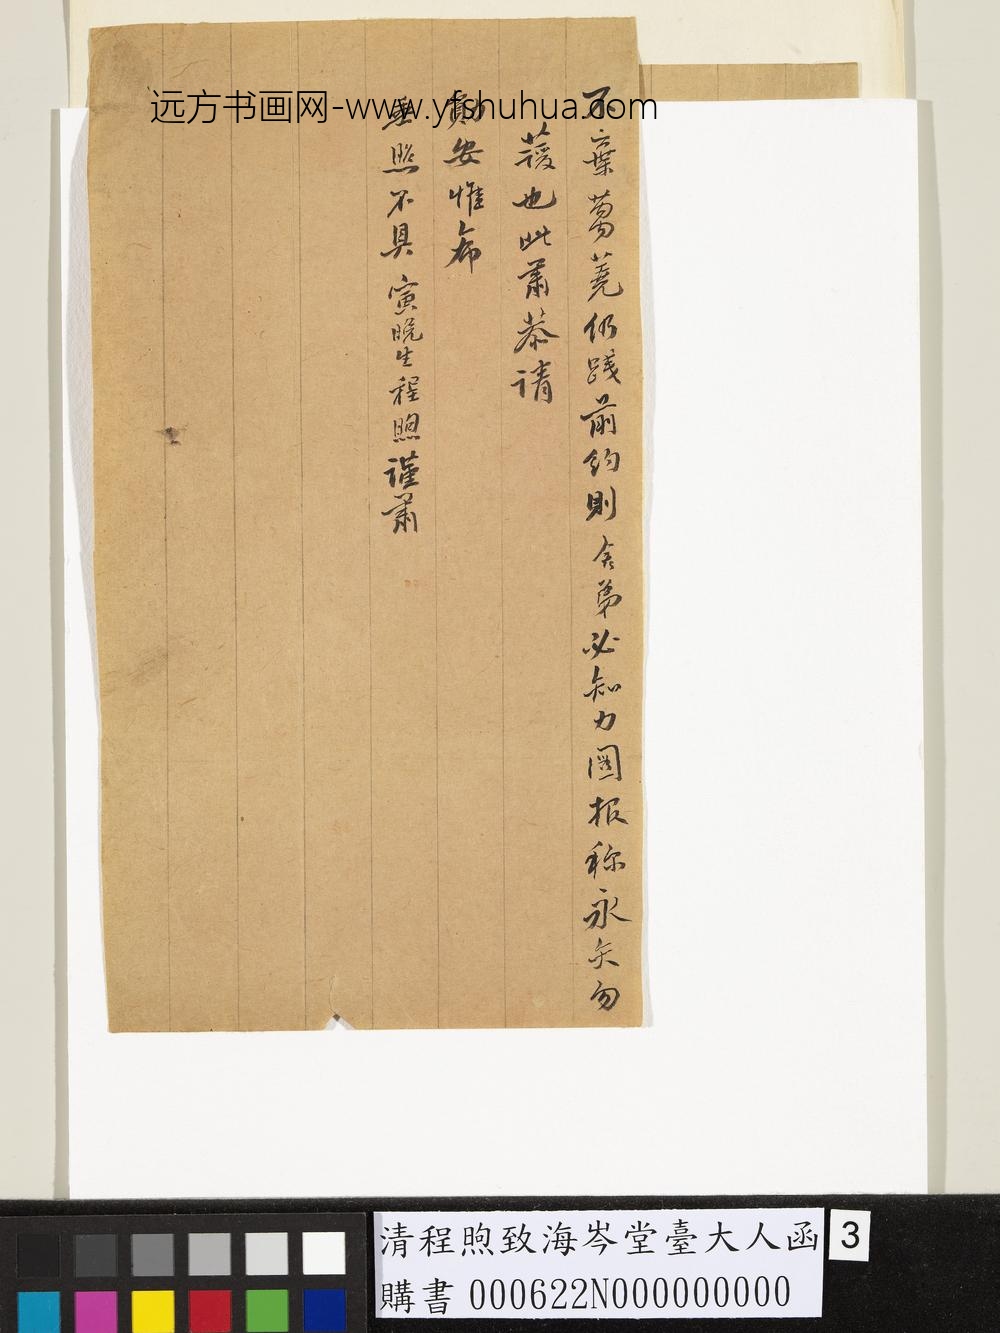 远方书画网-www.yfshuhua.com
不棄蒭蕘仍踐前約則舍弟必知力圖报称永矢勿
蘐也此肅恭請
勛安惟希
垂照不具 寅晚生程煦謹肅
清程煦致海岑堂臺大人函
購書 000622N000000000
3